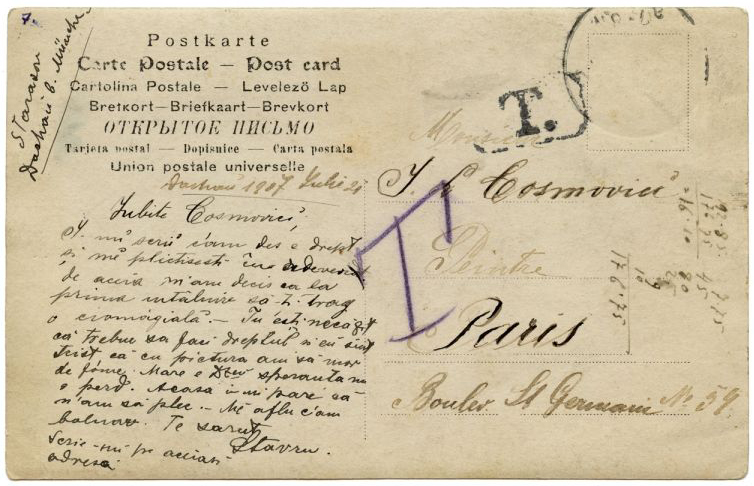 7.
Starason
Dachau b. München
Postkarte
Carte Postale — Post card
Cartolina Postale — Levelező Lap
Brefkort—Briefkaart—Brevkort
ОТКРЫТОЕ ПИСЬМО
Tarjeta postal — Dopisnice — Carta postala
Union postale universelle
Dachau 1907 Iulie 21
Iubite Cosmovici,
scrii cam des e drept
și mă plictisesti
de aceia m'am decis ca la
prima intalnire sa-ti trag
o cromogială.— Tu ești necăjit
că trebue sa faci dreptul si eu sint
trist că cu pictura am să mor
de fóme. Mare e speranta nu
o perd. Acasă imi pare că
n'am să plec.— Mă aflu cam
bolnav. Te sarut
Stavru.
Scrie-mi pe aciasi
adresa
T.
T
Monsieur
Cosmovici
Peintre
Paris
Boulev St Germain No 59
176.75